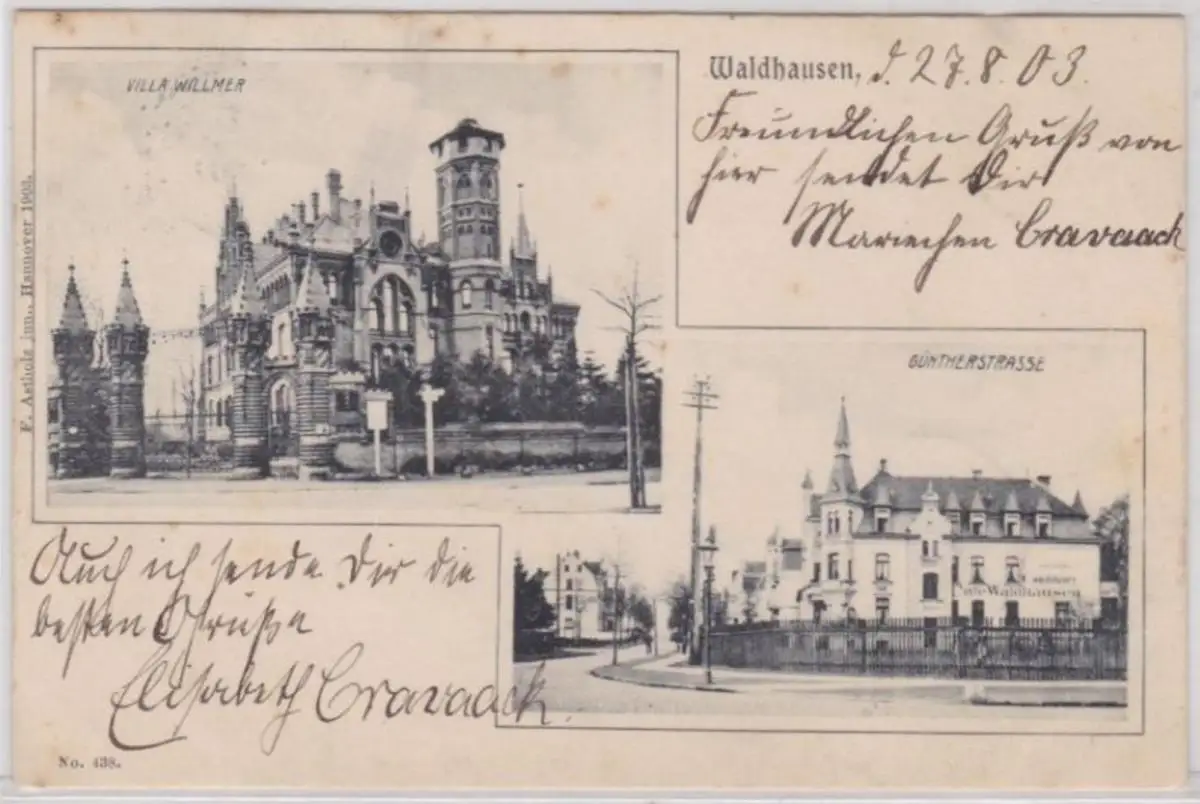 VILLA WILLMER
Waldhausen, d. 27.8.03.
Freundlichen Gruß von
hier sendet Dir
Mariechen Cravaack
F. Astholz jun., Hannover 1903.
GÜNTHERSTRASSE
Café Waldhausen
Auch ich sende Dir die
besten Grüße
Elisabeth Cravaack.
No. 438.